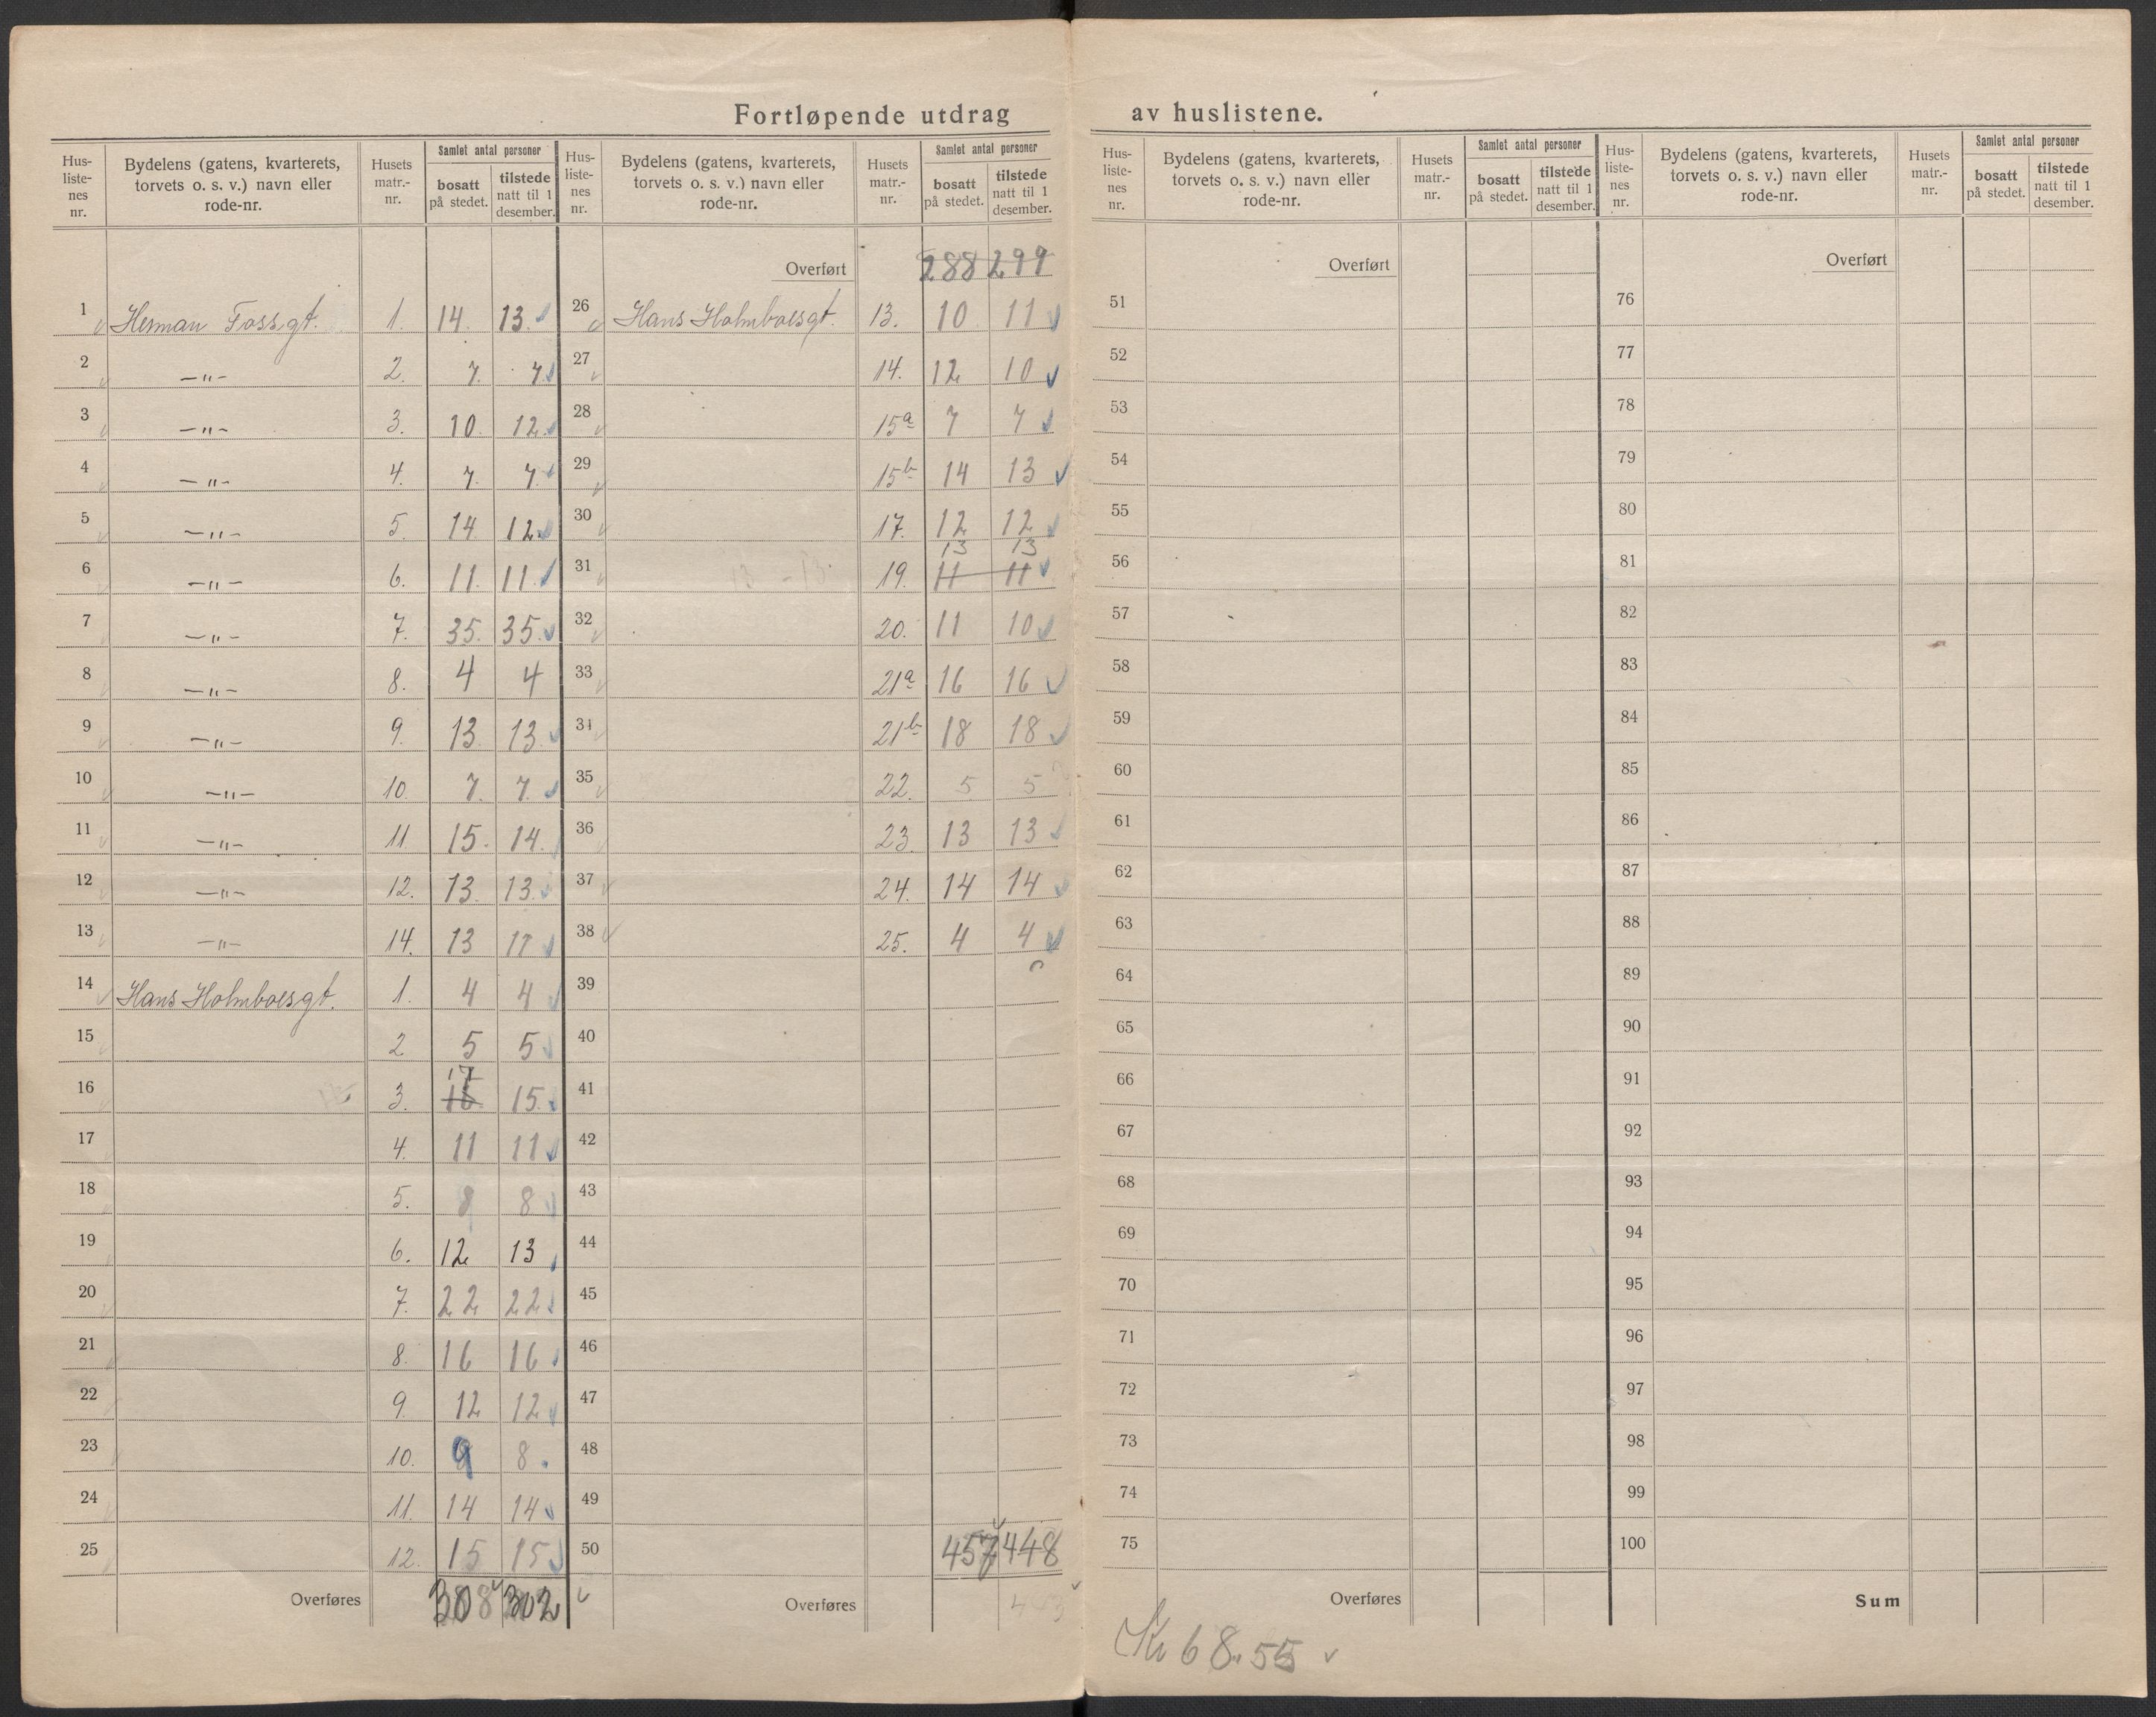 Fortløpende utdrag av huslistene.
Hus-liste-nes nr. | Bydelens (gatens, kvarterets, torvets o. s. v.) navn eller rode-nr. | Husets matr.-nr. | Samlet antal personer | bosatt på stedet. | tilstede natt til 1 desember.
1 Herman Fossgt. 1. 14. 13.
2 —"— 2. 7. 7.
3 —"— 3. 10. 12.
4 —"— 4. 7. 7.
5 —"— 5. 14 12.
6 —"— 6. 11. 11.
7 —"— 7. 35. 35.
8 —"— 8. 4 4
9 —"— 9. 13. 13.
10 —"— 10. 7. 7.
11 —"— 11 15. 14.
12 —"— 12. 13. 13.
13 —"— 14. 13
14 Hans Holmboesgt. 1. 4 4
15 2 5 5
17
16 3. 15.
17 4. 11 11
18 5. 8 8
19 6. 12 13
20 7. 22 22
21 8. 16 16
22 9. 12 12
23 10. 9 8.
24 11. 14 14
25 12. 15 15
Overføres 308 302
Hus-liste-nes nr. | Bydelens (gatens, kvarterets, torvets o. s. v.) navn eller rode-nr. | Husets matr.-nr. | Samlet antal personer | bosatt på stedet. | tilstede natt til 1 desember.
Overført 288 299
26 Hans Holmboesgt. 13. 10 11
27 14. 12 10
28 15a 7 7
29 15b 14 13
30 17. 12 12
13 13
31 19. 11 11
32 20. 11 10
33 21a 16 16
34 21b 18 18
35 22. 5 5
36 23. 13 13
37 24. 14 14
38 25. 4 4
39
40
41
42
43
44
45
46
47
48
49
50 457 448
Overføres
Hus-liste-nes nr. | Bydelens (gatens, kvarterets, torvets o. s. v.) navn eller rode-nr. | Husets matr.-nr. | Samlet antal personer | bosatt på stedet. | tilstede natt til 1 desember.
Overført
51
52
53
54
55
56
57
58
59
60
61
62
63
64
65
66
67
68
69
70
71
72
73
74
75
Overføres
Kr 68.55
Hus-liste-nes nr. | Bydelens (gatens, kvarterets, torvets o. s. v.) navn eller rode-nr. | Husets matr.-nr. | Samlet antal personer | bosatt på stedet. | tilstede natt til 1 desember.
Overført
76
77
78
79
80
81
82
83
84
85
86
87
88
89
90
91
92
93
94
95
96
97
98
99
100
Sum